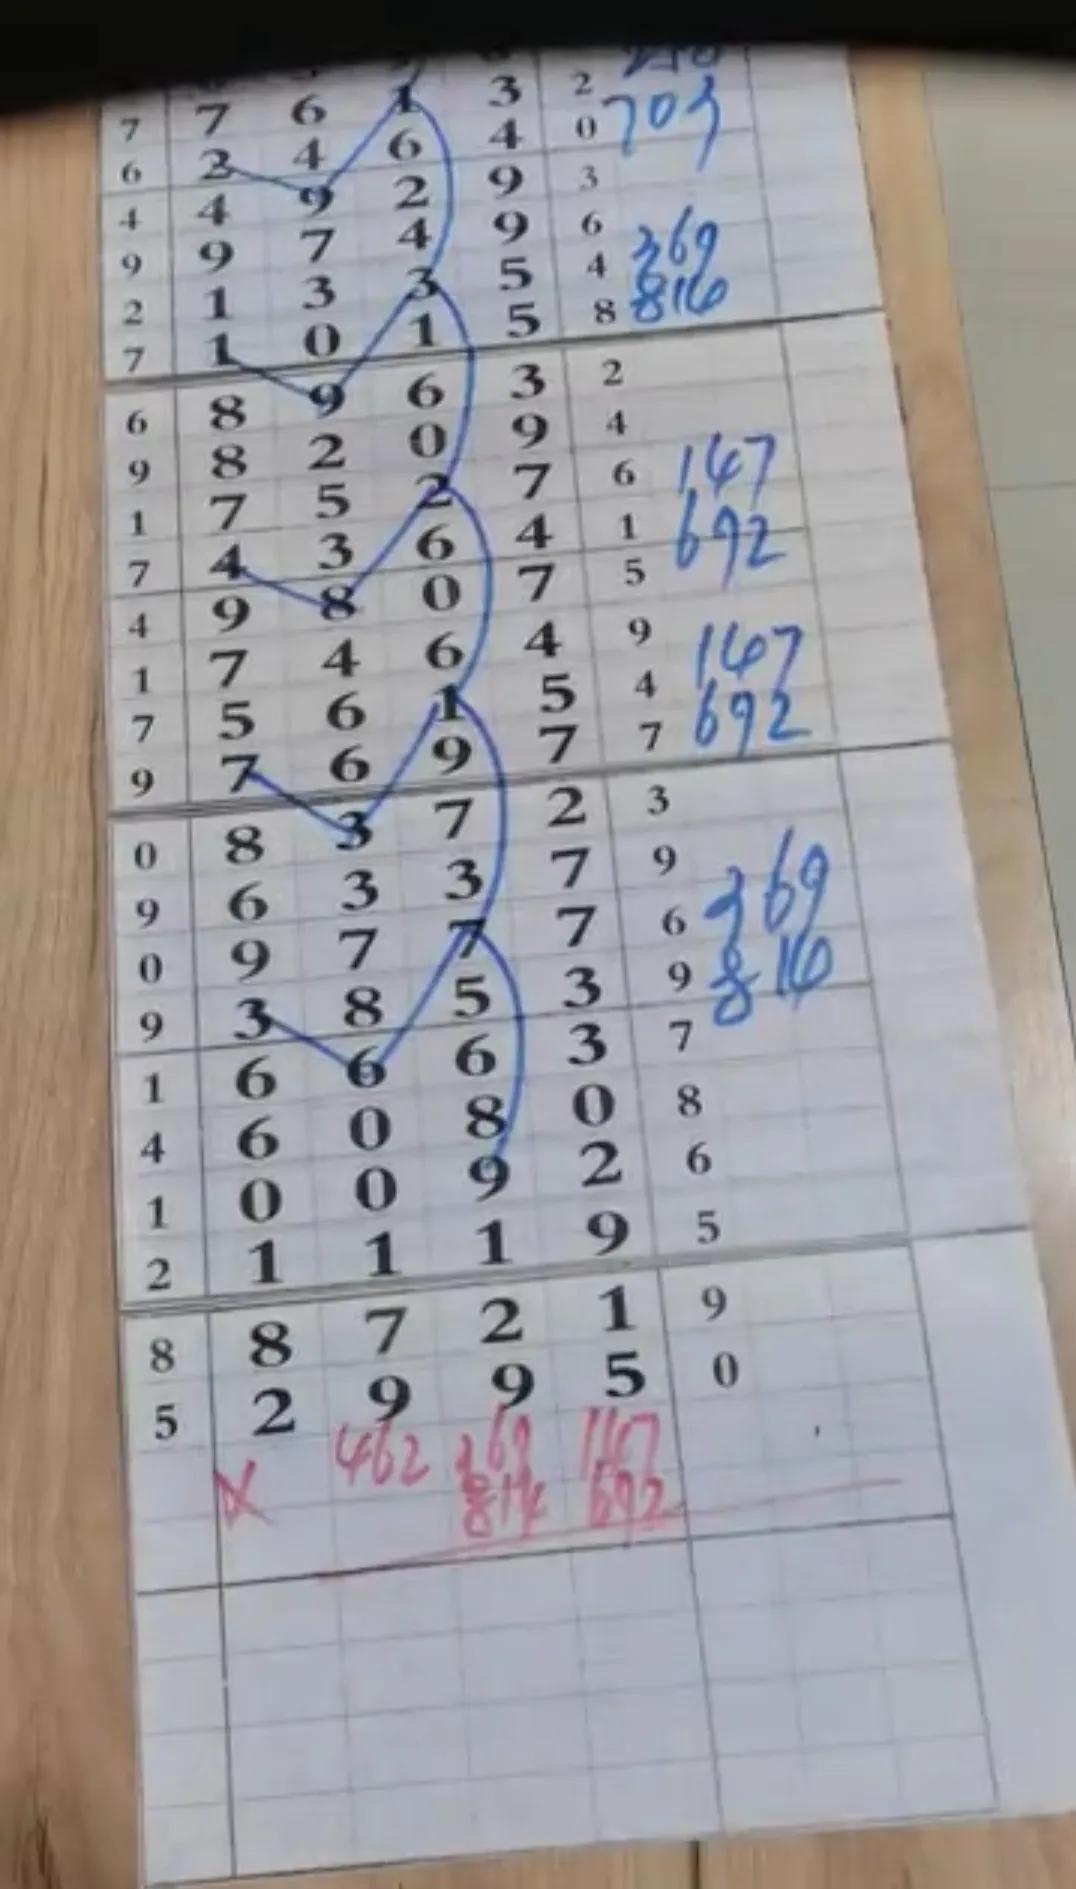 7 7 6 1 3 2
6 2 4 6 4 0 703
4 4 9 2 9 3
9 9 7 4 9 6 369
2 1 3 3 5 4 816
7 1 0 1 5 8
6 8 9 6 3 2
9 8 2 0 9 4
1 7 5 2 7 6 147
7 4 3 6 4 1 692
4 9 8 0 7 5
1 7 4 6 4 9 147
7 5 6 1 5 4 692
9 7 6 9 7 7
0 8 3 7 2 3
9 6 3 3 7 9 369
0 9 7 7 7 6 816
9 3 8 5 3 9
1 6 6 6 3 7
4 6 0 8 0 8
1 0 0 9 2 6
2 1 1 1 9 5
8 8 7 2 1 9
5 2 9 9 5 0
X 462 369 147
814 692